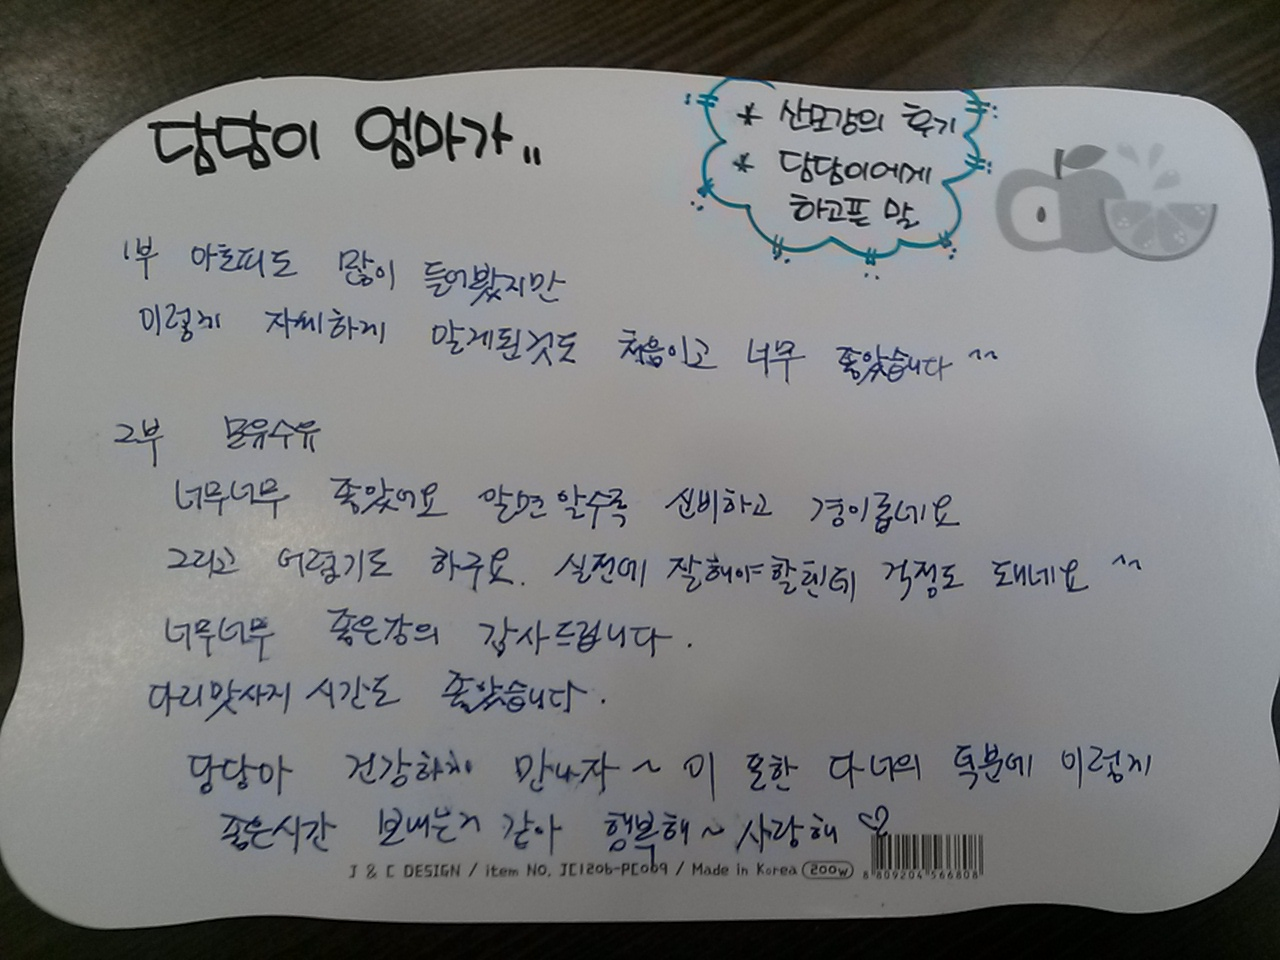 담담이 엄마가..
* 산모강의 후기
* 담담이에게
하고픈 말
1부 아토피도 많이 들어봤지만
이렇게 자세하게 알게된것도 처음이고 너무 좋았습니다 ^^
2부 모유수유
너무너무 좋았어요 알면 알수록 신비하고 경이롭네요
그리고 어렵기도 하구요. 실전에 잘해야할텐데 걱정도 돼네요 ^^
너무너무 좋은강의 감사드립니다.
다리맛사지 시간도 좋았습니다.
담담아 건강하게 만나자~ 이 또한 다 너의 덕분에 이렇게
좋은시간 보내는거 같아 행복해~ 사랑해 ♡
J & C DESIGN / item NO. JC1206-PC009 / Made in Korea 200w
8 809204 566808